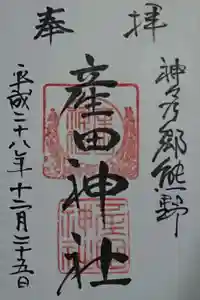 奉拝
神々の郷熊野
産田神社
平成二十八年十二月二十五日